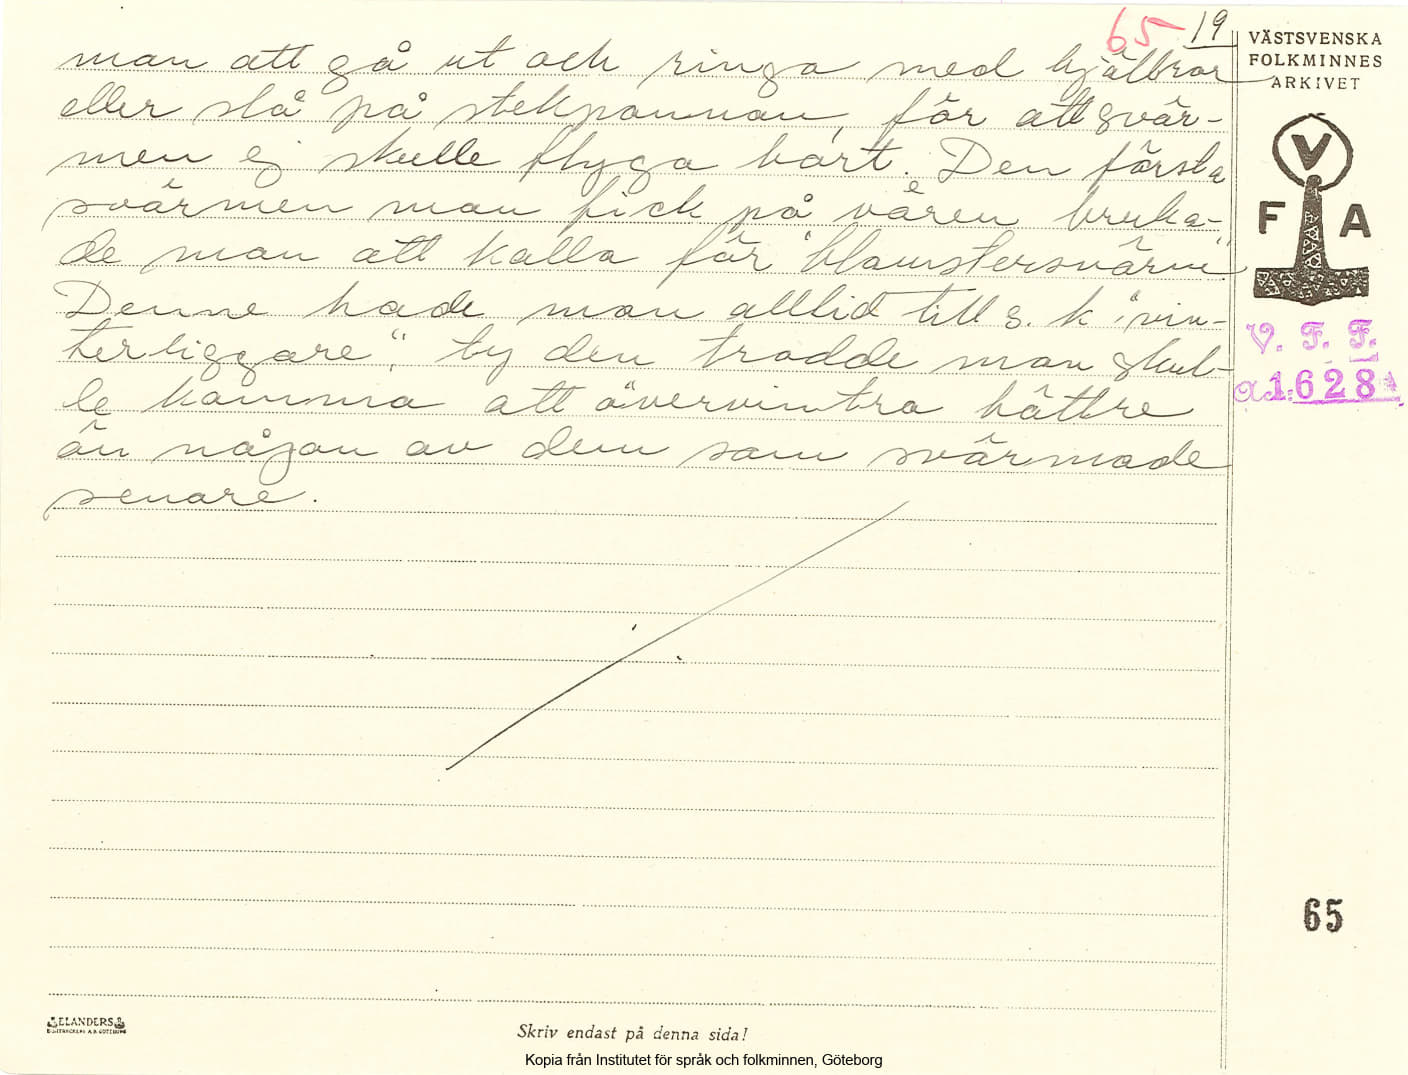 65 19
man att gå ut och ringa med bjällror
eller slå på stekpannan, för att svär-
men ej skulle flyga bort. Den första
svärmen man fick på våren bruka-
de man att kalla för "blomstersvärm".
Denne hade man alltid till s. k. "vin-
terliggare", ty den trodde man skul-
le komma att övervintra bättre
än någon av dem som svärmade
senare.
VÄSTSVENSKA
FOLKMINNES
ARKIVET
V
F A
V. F. F.
1628
65
ELANDERS
Skriv endast på denna sida!
Kopia från Institutet för språk och folkminnen, Göteborg